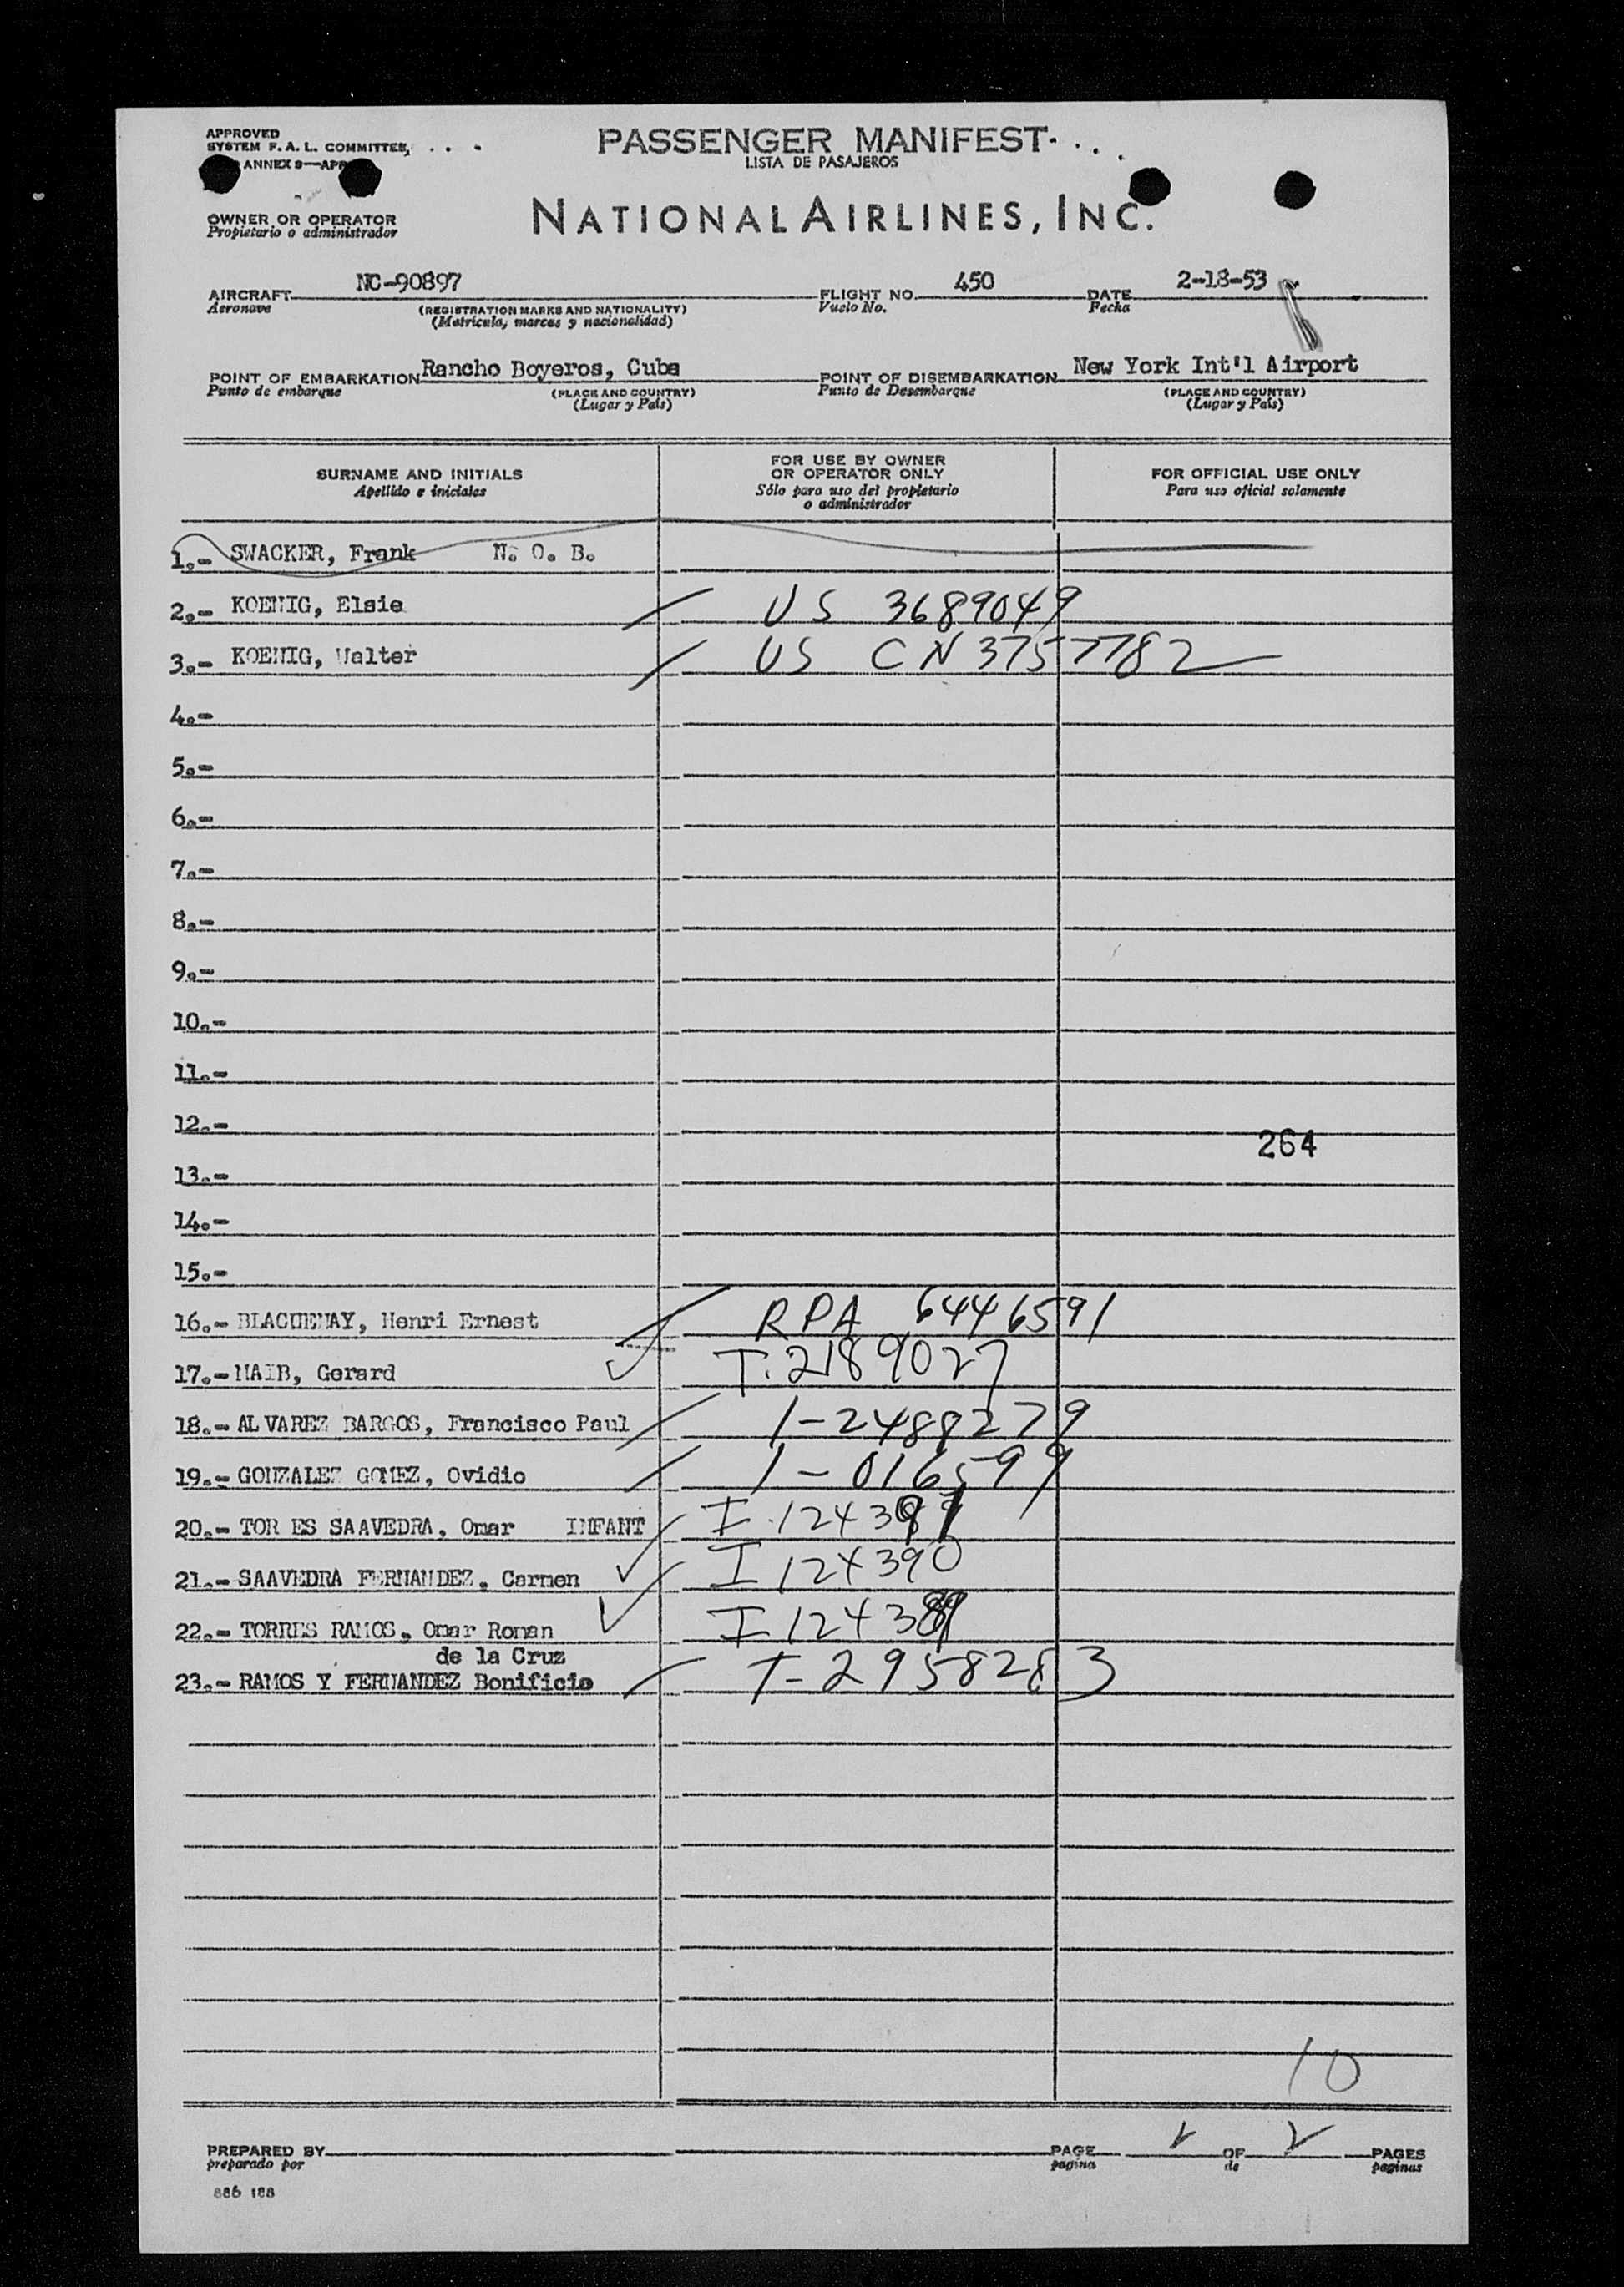 APPROVED
SYSTEM F. A. L. COMMITTEE,
ANNEX 9—APP
PASSENGER MANIFEST
LISTA DE PASAJEROS
OWNER OR OPERATOR
Propietario o administrador
NATIONAL AIRLINES, INC.
AIRCRAFT NC-90897 FLIGHT NO. 450 DATE 2-18-53
Aeronave (REGISTRATION MARKS AND NATIONALITY) Vuelo No. Fecha
(Matricula, marcas y nacionalidad)
POINT OF EMBARKATION Rancho Boyeros, Cuba POINT OF DISEMBARKATION New York Int'l Airport
Punto de embarque (PLACE AND COUNTRY) Punto de Desembarque (PLACE AND COUNTRY)
(Lugar y País) (Lugar y País)
SURNAME AND INITIALS
Apellido e iniciales
FOR USE BY OWNER
OR OPERATOR ONLY
Sólo para uso del propietario
o administrador
FOR OFFICIAL USE ONLY
Para uso oficial solamente
1.- SWACKER, Frank N. O. B.
2.- KOENIG, Elsie US 3689049
3.- KOENIG, Walter US CN 3757782
4.-
5.-
6.-
7.-
8.-
9.-
10.-
11.-
12.-
264
13.-
14.-
15.-
16.- Henri Ernest RPA 6446591
17.- Gerard T.2189027
18.- ALVAREZ BARGOS, Francisco Paul 1-2488279
19.- GONZALEZ GOMEZ, Ovidio 1-0165
20.- TOR ES SAAVEDRA, Omar INFANT I
21.- SAAVEDRA FERNANDEZ, Carmen I 124390
22.- TORRES RAMOS, Omar Roman I 124389
de la Cruz
23.- RAMOS Y FERNANDEZ Bonificio T-2958283
10
PREPARED BY PAGE 2 OF 2 PAGES
preparado por pagina de paginas
886 188